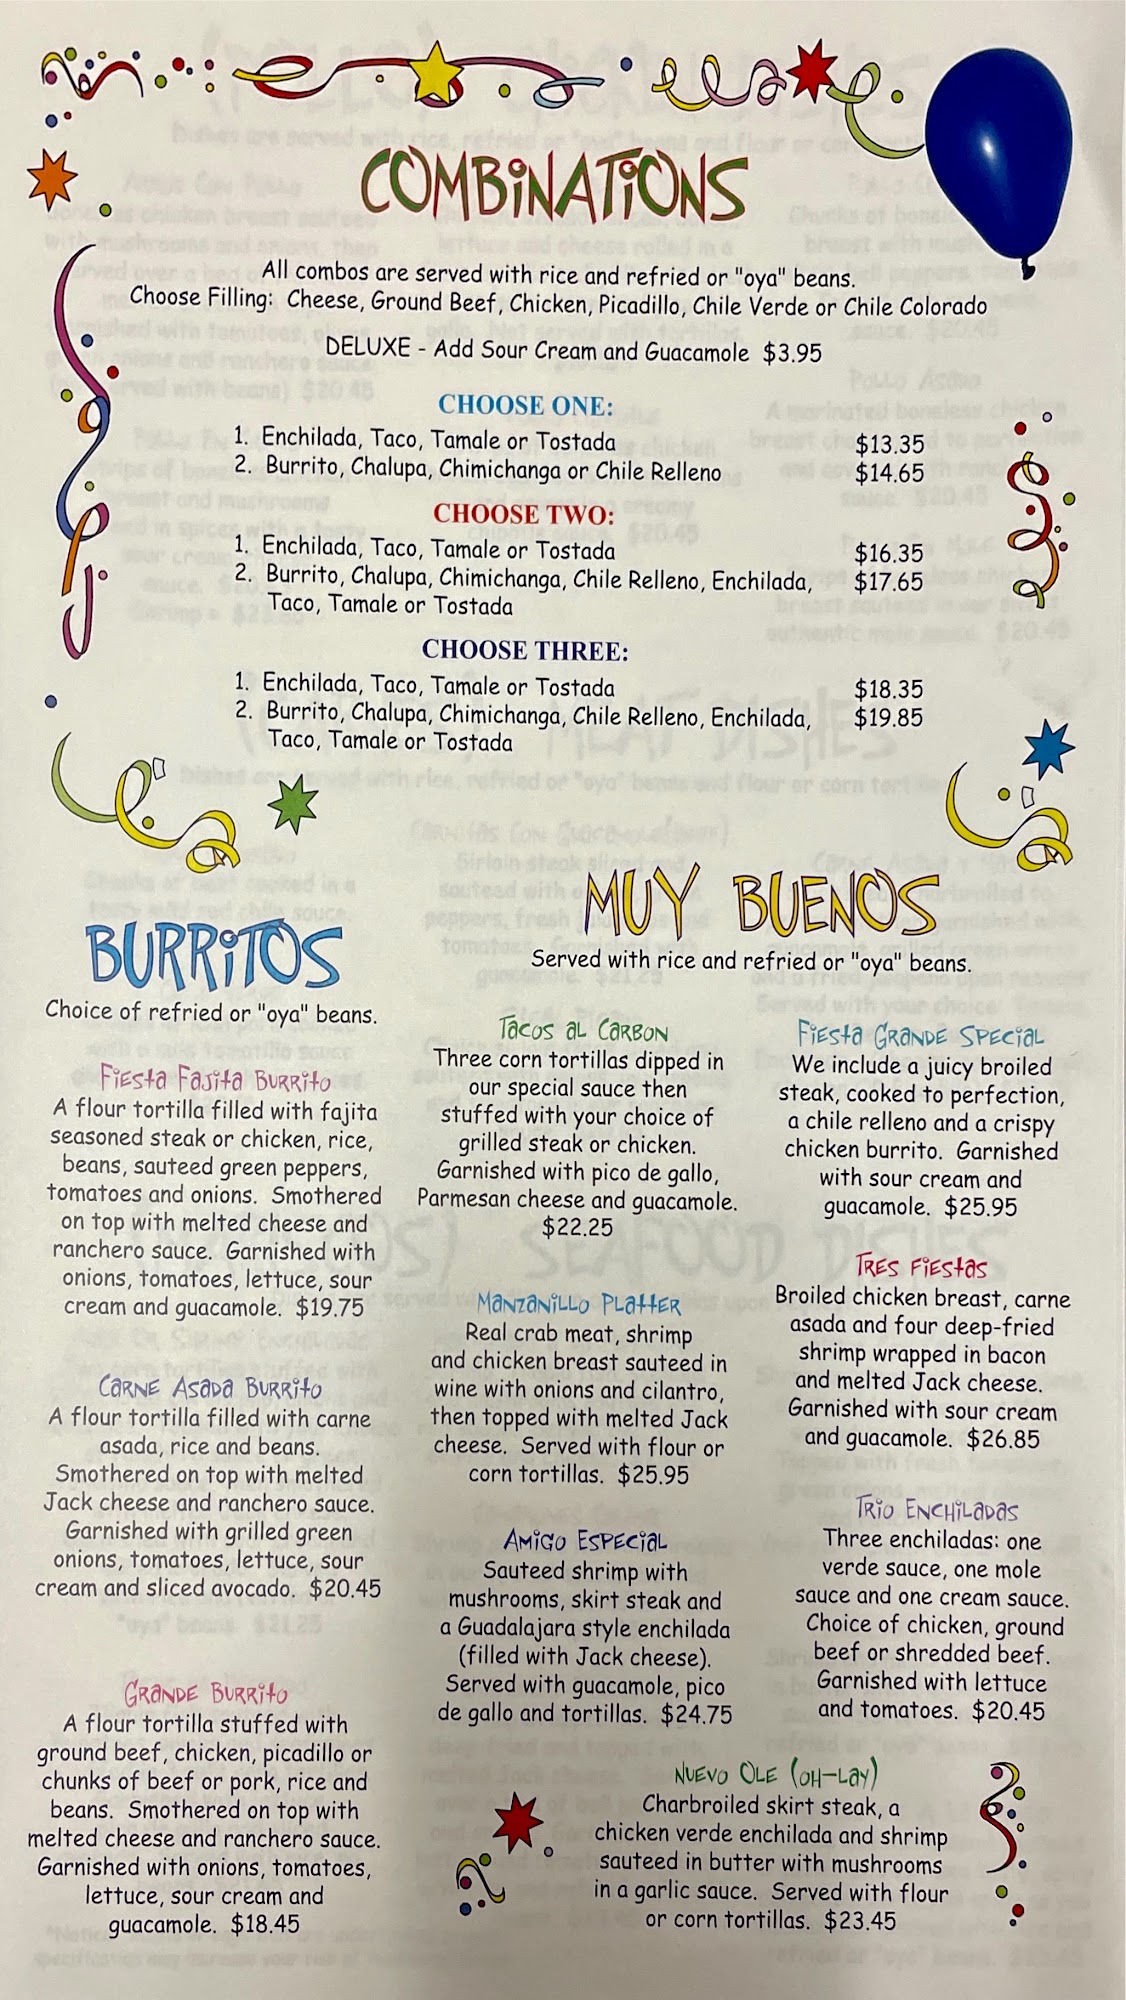 COMBINATIONS
All combos are served with rice and refried or "oya" beans.
Choose Filling: Cheese, Ground Beef, Chicken, Picadillo, Chile Verde or Chile Colorado
DELUXE - Add Sour Cream and Guacamole $3.95
CHOOSE ONE:
1. Enchilada, Taco, Tamale or Tostada $13.35
2. Burrito, Chalupa, Chimichanga or Chile Relleno $14.65
CHOOSE TWO:
1. Enchilada, Taco, Tamale or Tostada $16.35
2. Burrito, Chalupa, Chimichanga, Chile Relleno, Enchilada, $17.65
Taco, Tamale or Tostada
CHOOSE THREE:
1. Enchilada, Taco, Tamale or Tostada $18.35
2. Burrito, Chalupa, Chimichanga, Chile Relleno, Enchilada, $19.85
Taco, Tamale or Tostada
BURRITOS
Choice of refried or "oya" beans.
Fiesta Fajita Burrito
A flour tortilla filled with fajita
seasoned steak or chicken, rice,
beans, sauteed green peppers,
tomatoes and onions. Smothered
on top with melted cheese and
ranchero sauce. Garnished with
onions, tomatoes, lettuce, sour
cream and guacamole. $19.75
Carne Asada Burrito
A flour tortilla filled with carne
asada, rice and beans.
Smothered on top with melted
Jack cheese and ranchero sauce.
Garnished with grilled green
onions, tomatoes, lettuce, sour
cream and sliced avocado. $20.45
Grande Burrito
A flour tortilla stuffed with
ground beef, chicken, picadillo or
chunks of beef or pork, rice and
beans. Smothered on top with
melted cheese and ranchero sauce.
Garnished with onions, tomatoes,
lettuce, sour cream and
guacamole. $18.45
MUY BUENOS
Served with rice and refried or "oya" beans.
Tacos al Carbon
Three corn tortillas dipped in
our special sauce then
stuffed with your choice of
grilled steak or chicken.
Garnished with pico de gallo,
Parmesan cheese and guacamole.
$22.25
Manzanillo Platter
Real crab meat, shrimp
and chicken breast sauteed in
wine with onions and cilantro,
then topped with melted Jack
cheese. Served with flour or
corn tortillas. $25.95
Amigo Especial
Sauteed shrimp with
mushrooms, skirt steak and
a Guadalajara style enchilada
(filled with Jack cheese).
Served with guacamole, pico
de gallo and tortillas. $24.75
Fiesta Grande Special
We include a juicy broiled
steak, cooked to perfection,
a chile relleno and a crispy
chicken burrito. Garnished
with sour cream and
guacamole. $25.95
Tres Fiestas
Broiled chicken breast, carne
asada and four deep-fried
shrimp wrapped in bacon
and melted Jack cheese.
Garnished with sour cream
and guacamole. $26.85
Trio Enchiladas
Three enchiladas: one
verde sauce, one mole
sauce and one cream sauce.
Choice of chicken, ground
beef or shredded beef.
Garnished with lettuce
and tomatoes. $20.45
Nuevo Ole (oh-lay)
Charbroiled skirt steak, a
chicken verde enchilada and shrimp
sauteed in butter with mushrooms
in a garlic sauce. Served with flour
or corn tortillas. $23.45